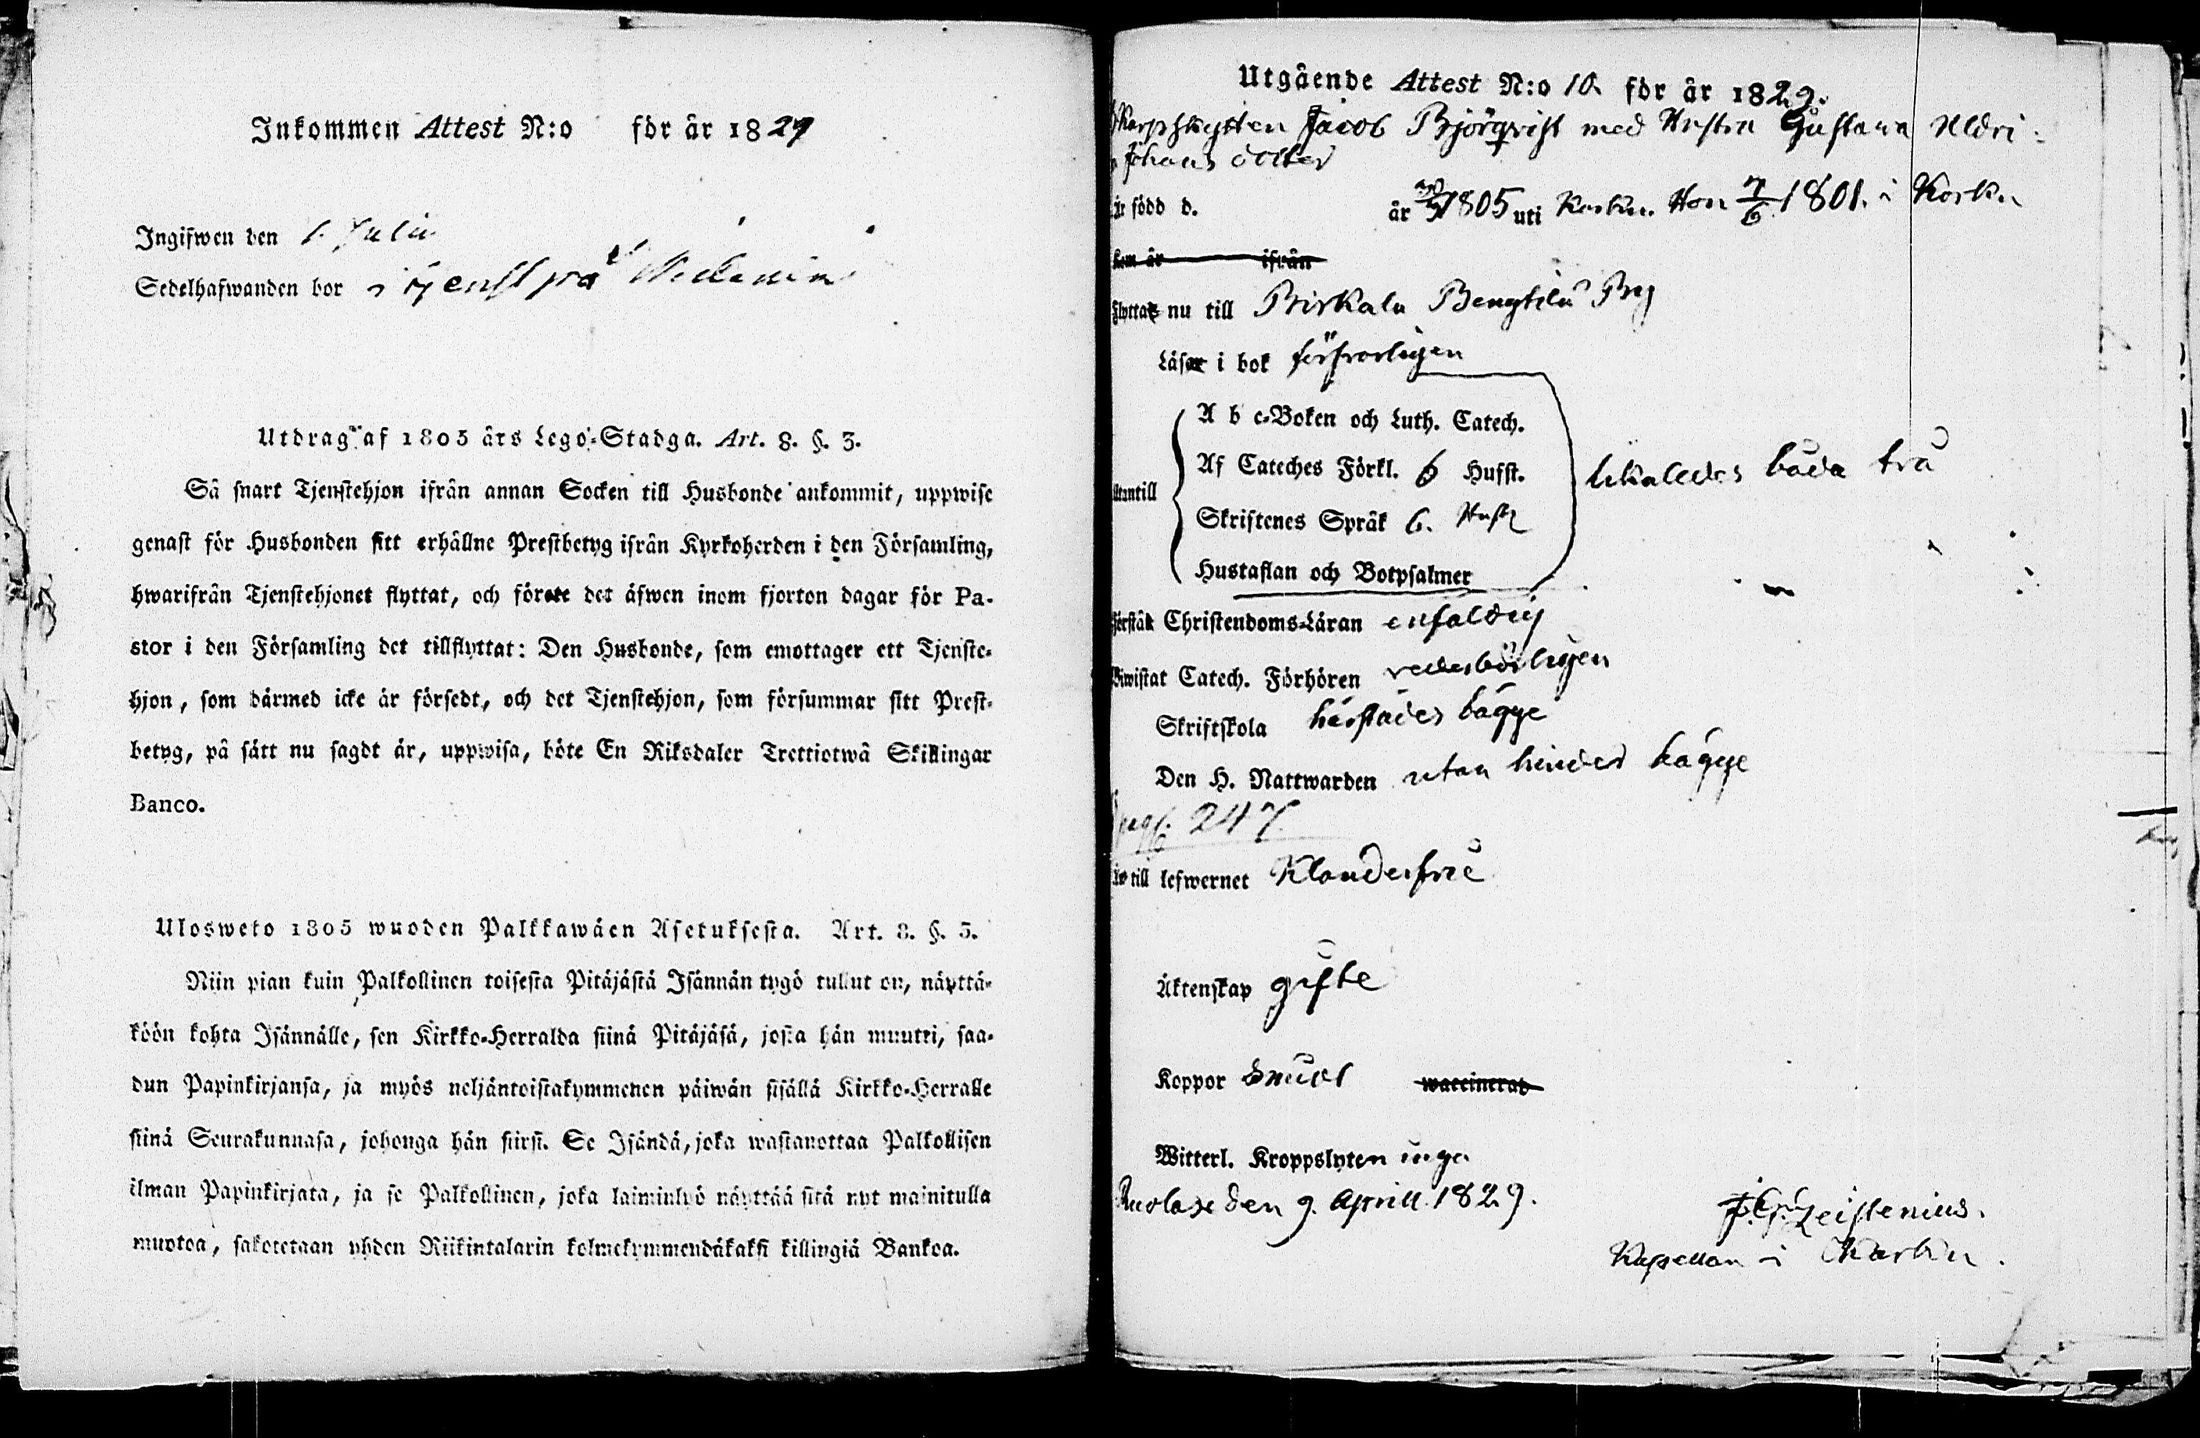 Inkommen Attest N:o för år 1829
Ingifwen den 1. Julii
Sedelhafwanden bor i tjenst på
Utdrag af 1805 års Lego-Stadga. Art. 8. §. 3.
Så snart Tjenstehjon ifrån annan Socken till Husbonde ankommit, uppwise
genast för Husbonden sitt erhållne Prestbetyg ifrån Kyrkoherden i den Församling,
hwarifrån Tjenstehjonet flyttat, och förete det äfwen inom fjorton dagar för Pa-
stor i den Församling det tillflyttat: Den Husbonde, som emottager ett Tjenste-
hjon, som därmed icke är försedt, och det Tjenstehjon, som försummar sitt Prest-
betyg, på sätt nu sagdt är, uppwisa, böte En Riksdaler Trettiotwå Skillingar
Banco.
Ulosweto 1805 wuoden Palkkawäen Asetuksesta. Art. 8. §. 3.
Niin pian kuin Palkollinen toisesta Pitäjästä Isännän tygö tullut on, näyttä-
köön kohta Isännälle, sen Kirkko-Herralda siinä Pitäjäsä, josta hän muutti, saa-
dun Papinkirjansa, ja myös neljäntoistakymmenen päiwän sisällä Kirkko-Herralle
siinä Seurakunnasa, johonga hän siirsi. Se Isändä, joka wastanottaa Palkollisen
ilman Papinkirjata, ja se Palkollinen, joka laiminlyö näyttää sitä nyt mainitulla
muotoa, sakotetaan yhden Riikintalarin kolmekymmendäkaksi killingiä Bankoa.
Utgående Attest N:o 10. för år 1829.
Skarpskytten Jacob Björqvist med Hustru Gustava Uldri-
Johans dotter
är född d. år 1805 uti Karkku. Hon 7/6 1801. i Karkku
Kom år ifrån
Flyttat nu till Birkala Bengtilä By
Läser i bok försvarligen
Utantill
A b c-Boken och Luth. Catech.
Af Cateches Förkl. 6 Hufst.
Skriftenes Språk 6. Hufst
Hustaflan och Botpsalmer
likaledes båda två
Förstår Christendoms-Läran enfaldig
Biwistat Catech. Förhören vederbörligen
Skriftskola härstädes bägge
Den H. Nattwarden utan hinder bägge
pag. 247.
till lefwernet Klanderfrie
Äktenskap gifte
Koppor haft waccinerad
Witterl. Kroppslyten inga
den 9. Aprill 1829.
Kapellan i Karkku.